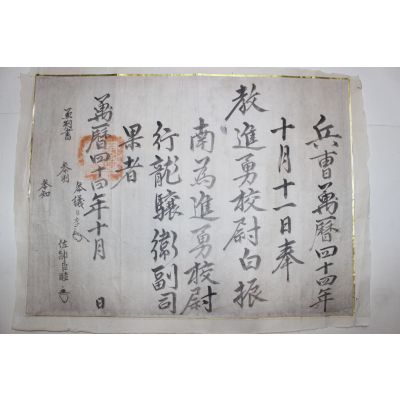 兵曹萬曆四十四年
十月十一日奉
教進勇校尉白振
南為進勇校尉
行龍驤衛副司
果者
萬曆四十四年十月 日
參判
參議
參知
佐郎